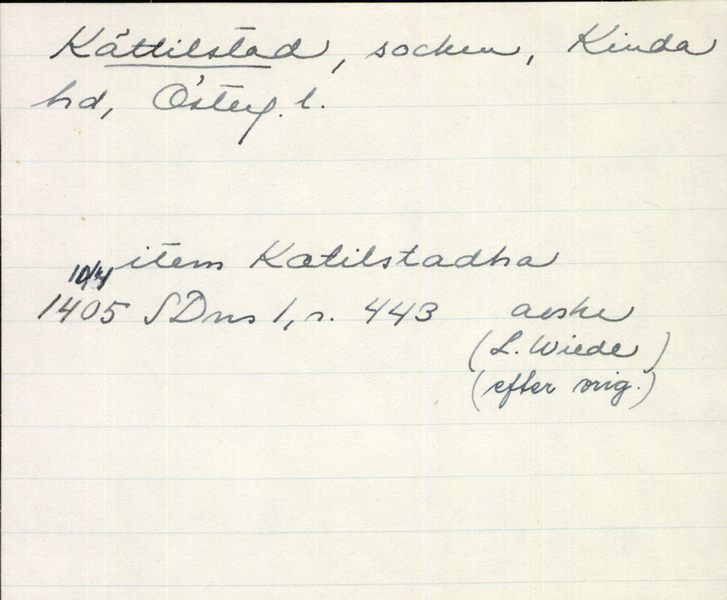 Kättilstad, socken, Kinda
hd, Österg. l.
item Katilstadha
10/4
1405 SDns 1, s. 443 avskr
(L. Wiede)
(efter orig.)